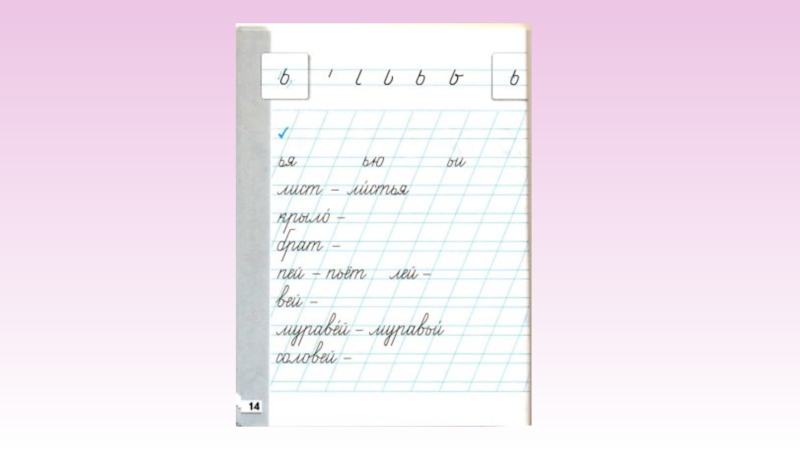 ь ˈ ι ь ь ь ь
ья ью ьи
лист – ли́стья
крыло́ –
брат –
пей – пьёт лей –
вей –
мураве́й – муравьи́
соловей –
14